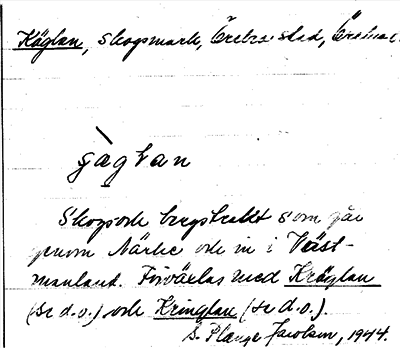 Käglan, skogsmark, Örebro stad, Örebro
gàgḷan
Skogs och bergstrakt som går
genom Närke och in i Väst-
manland. Förväxlas med Kräglan
(se d.o.) och Kringlan (se d.o.).
S. Plænge Jacobson, 1944.